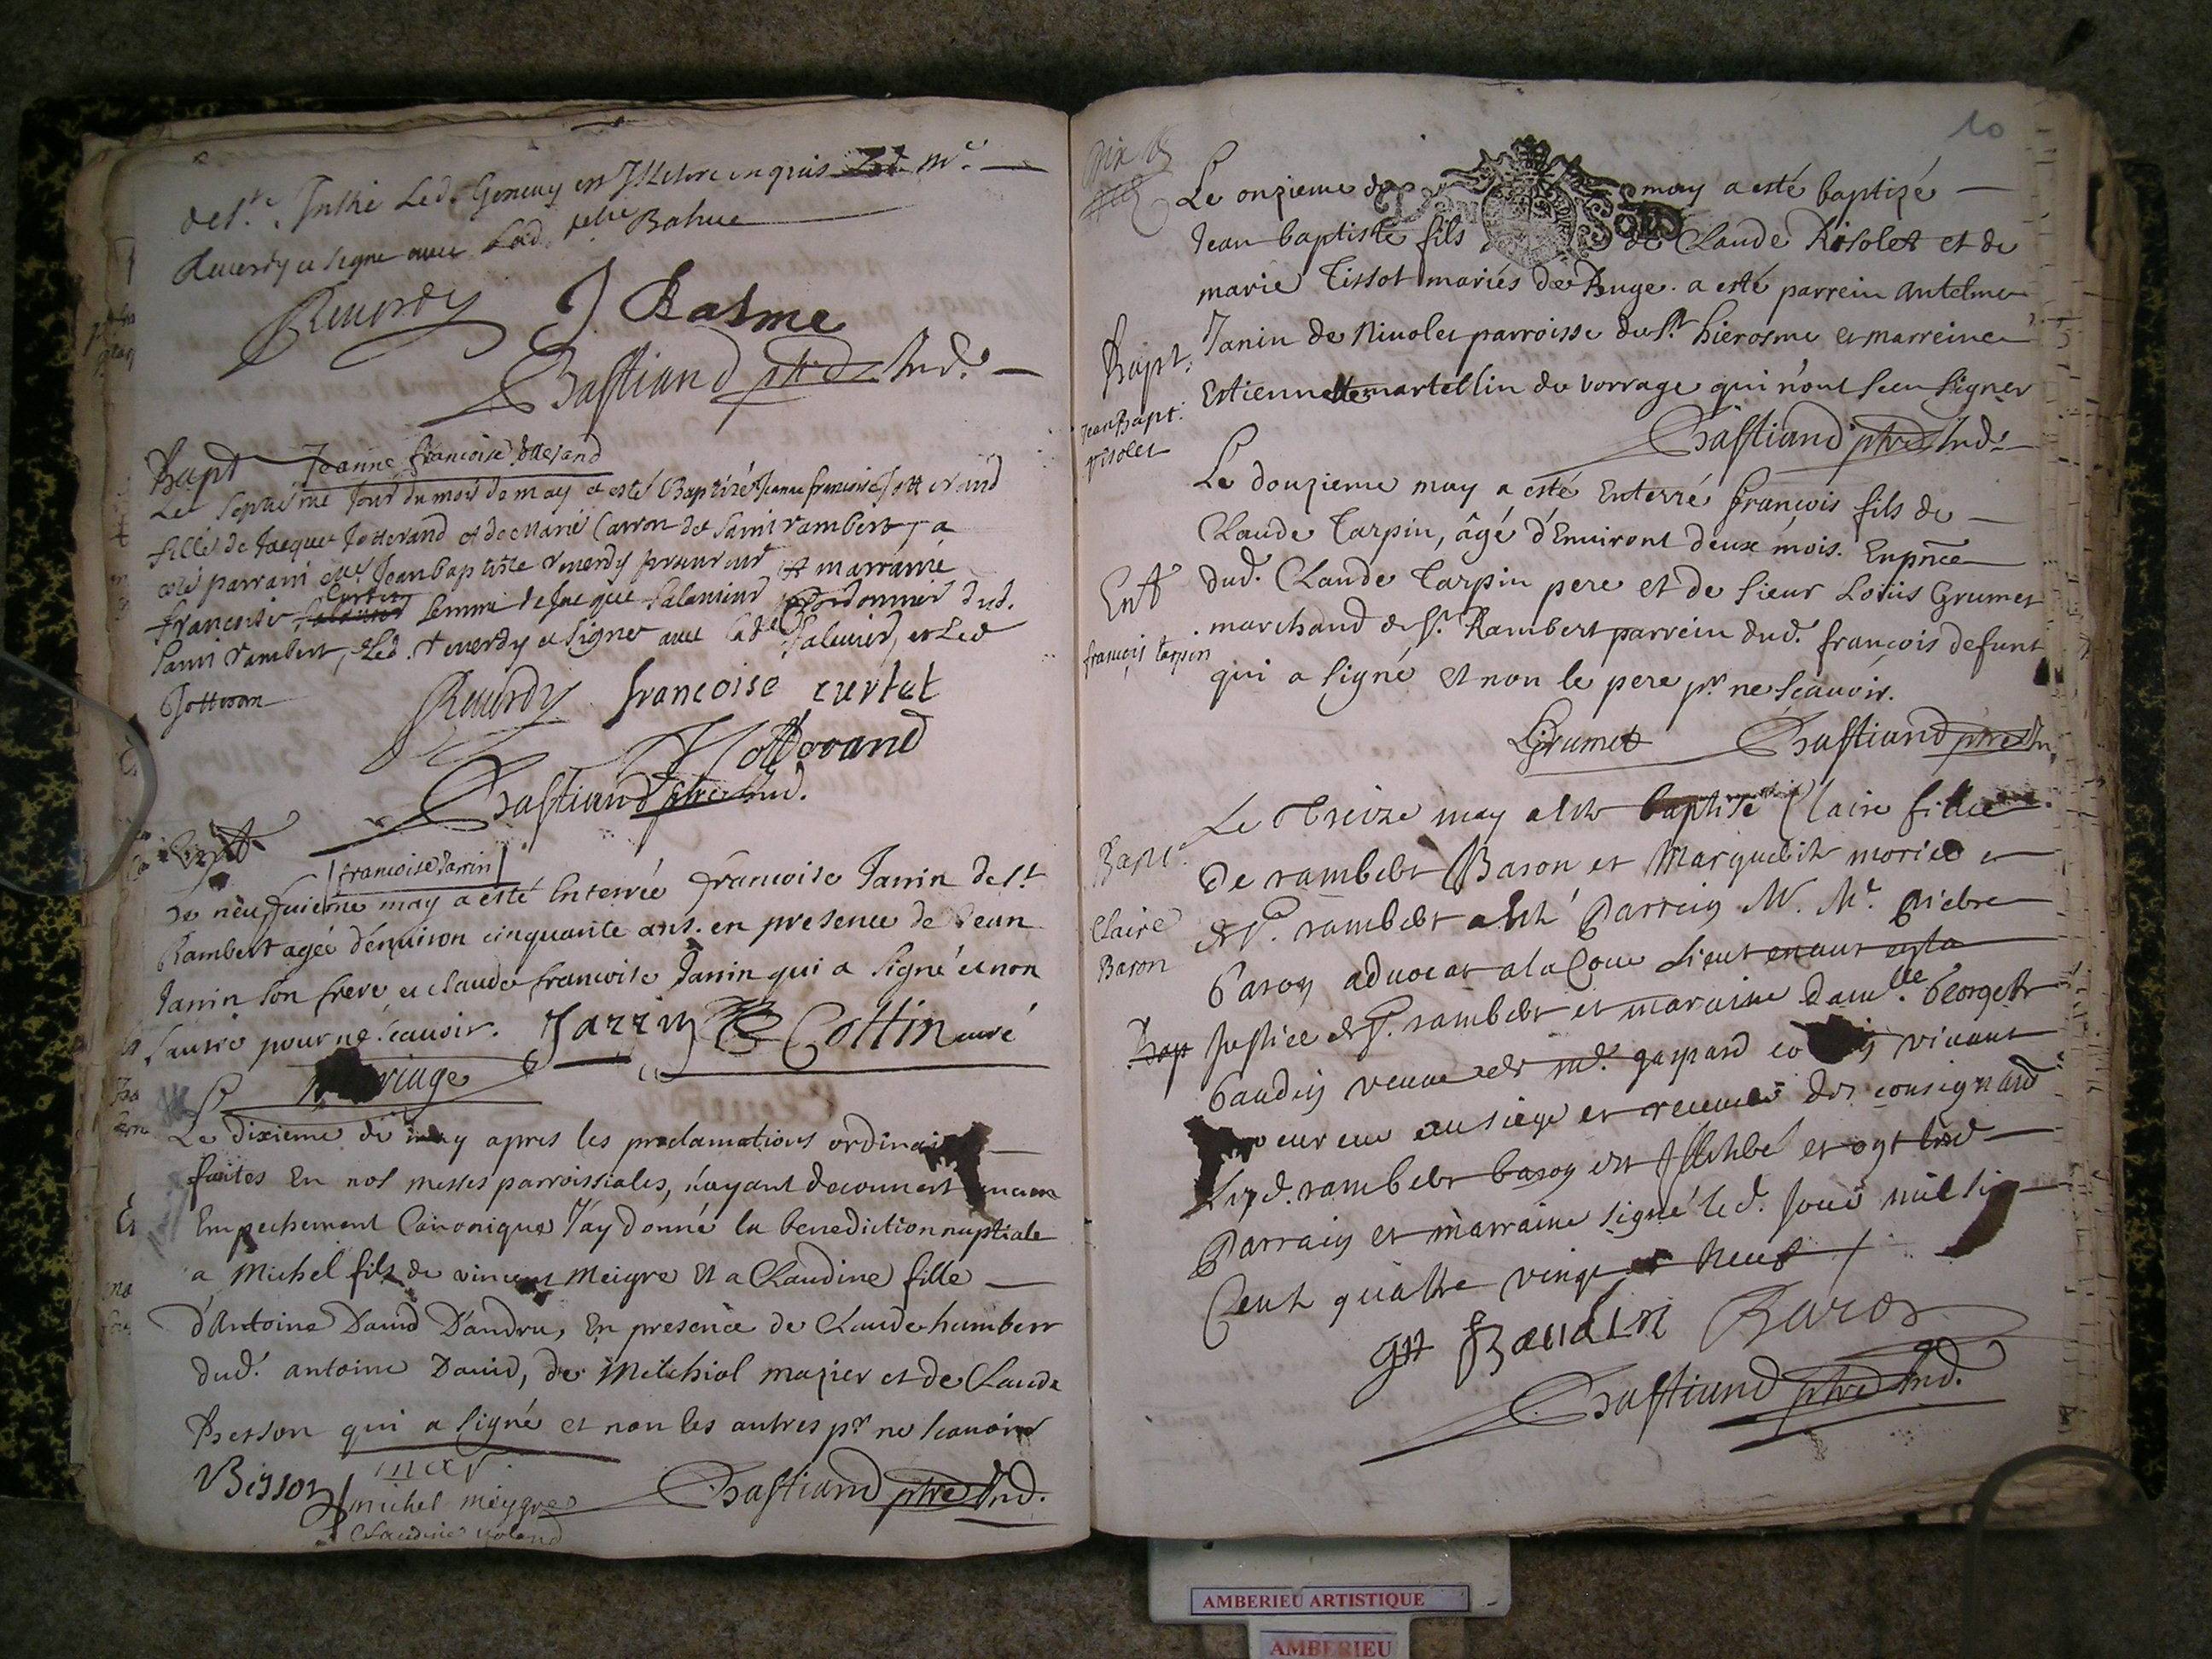 Led. Geneuy
Reuerdy a signé auec Balme
Reuerdy J Balme
Bastiand ptre Ind.
Bapt Jeanne françoise Jotterand
Le septième Jour du mois de may a esté Baptizé Jeanne françoise Jotterand
fille de Jacque Jotterand et de Marie Carron de saint rambert, a
esté parrain Me. Jean baptiste reuerdy procureur et marraine
françoise Curtet femme de Jacque Cordonnier dud.
saint rambert, Led. reuerdy a signé auec lad. et Led
Jotteran
Reuerdy françoise curtet
Jotterand
Bastiand ptre Ind.
Ent
francoise Janin
Le neufuieme may a esté Enterrée francoise Janin de st
Rambert agée d'enuiron cinquante ans. en presence de Jean
Janin son frere et claude francoise Janin qui a signé et non
l'autre pour ne scauoir. Janin Cottin curé
Mariage
Le dixieme de may apres les proclamations ordinai
faites En nos messes parroissiales, n'ayant decouuert aucun
Empechement Canonique J'ay donné la benediction nuptiale
a Michel fils de vincent Meigre et a Claudine fille
d'Antoine Dauid D'andru, En presence de Claude humbert
dud. antoine Dauid, de Melchiol mazier et de Claude
Besson qui a signé et non les autres pr ne scauoir
Besson mar
michel meygre Bastiand ptre Ind.
Claudine
10
Le onzieme de may a esté baptizé
Jean baptiste fils de Claude Risolet et de
marie Tissot mariés de Buge. a esté parrein Antelme
Janin de Niuolet parroisse de st. hierosme et marreine
Bapt.
Estiennette martellin du vorrage qui n'ont sceu signer
Jean Bapt.
risolet
Bastiand ptre Ind.
Le douzieme may a esté Enterré François fils de
Claude Tarpin, âgé d'Enuiront deux mois. En pnce
Ent
dud. Claude Tarpin pere et de sieur Louis Grumet
marchand de St. Rambert parrein dud. françois defunt
françois tarpin
qui a signé et non le pere pr ne scauoir.
Grumet Bastiand ptre In
Le Treize may a esté baptisé Claire fille
Bapt.
de rambert Baron et Marguerite morier
Claire
Baron
de St. rambert a esté Parrein M. Me. Pierre
Baron aduocat a la Cour Lieutenant en la
Bap
Justice de St. rambert et maraine damlle. George
Baudin veuue de me. gaspard vivant
eur au siege et receueur des consignaõ
dud. rambert baron est Illitéré et ont lesd
Parrain et marraine signé led. Jour mil six
Cent quattre vingt neuf /
gtt Baudin Baron
Bastiand ptre Ind.
AMBERIEU ARTISTIQUE
AMBERIEU